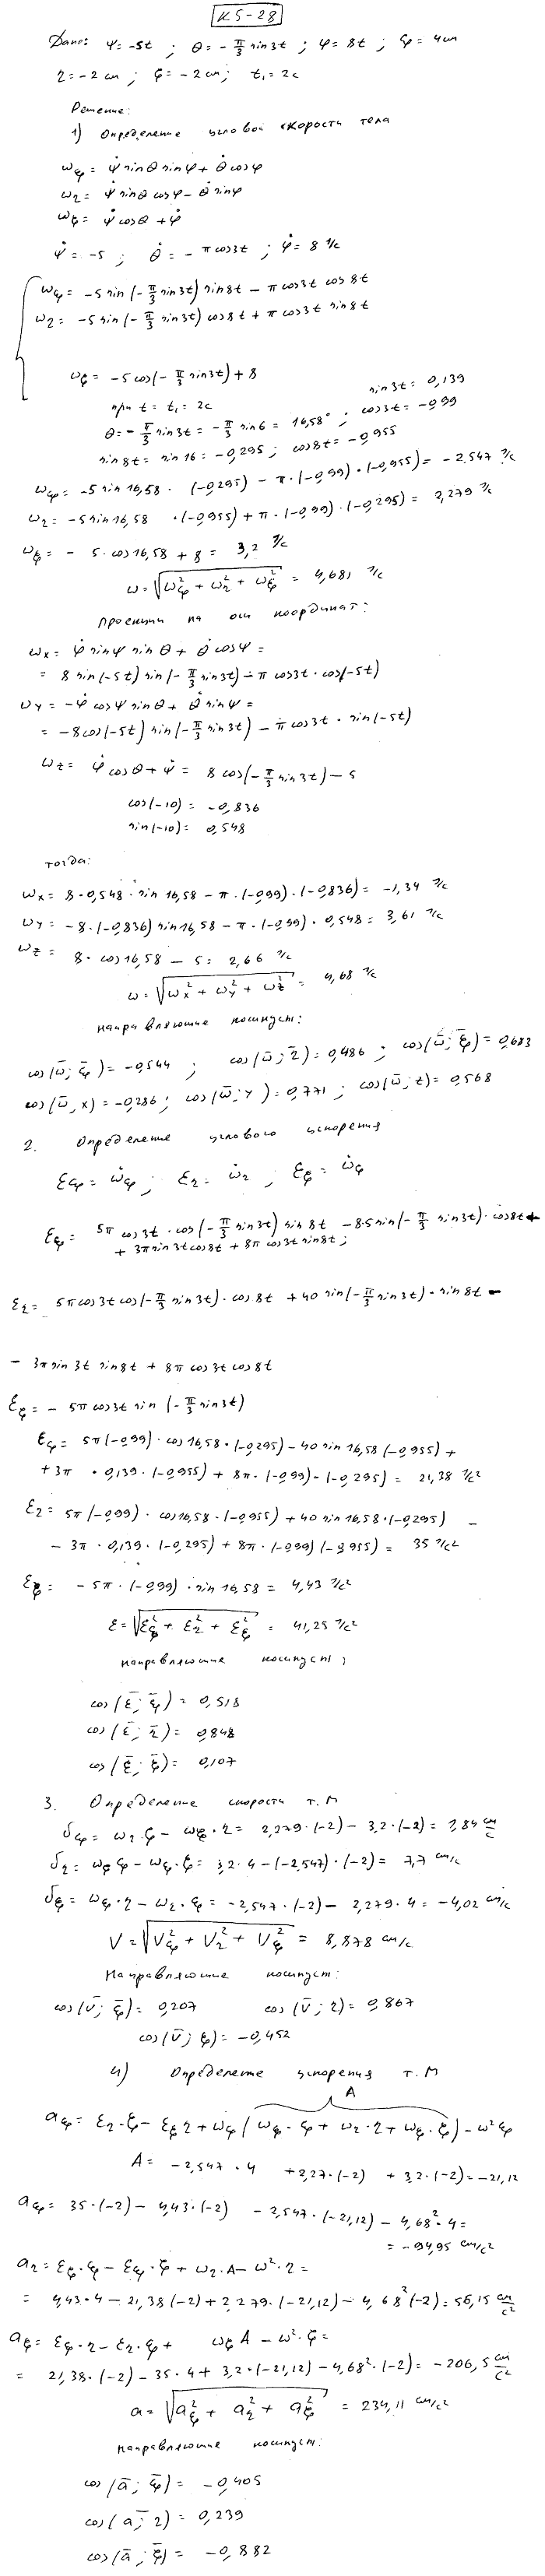 К5-28
Дано: ψ = -5t ; θ = - π/3 sin3t ; φ = 8t ; ξ = 4 см
η = -2 см ; ζ = -2 см ; t₁ = 2с
Решение:
1) Определение угловой скорости тела
ωξ = ψ̇ sinθ sinφ + θ̇ cosφ
ωη = ψ̇ sinθ cosφ - θ̇ sinφ
ωζ = ψ̇ cosθ + φ̇
ψ̇ = -5 ; θ̇ = - π cos3t ; φ̇ = 8 1/с
ωξ = -5 sin(-π/3 sin3t) sin8t - π cos3t cos8t
ωη = -5 sin(-π/3 sin3t) cos8t + π cos3t sin8t
ωζ = -5 cos(-π/3 sin3t) + 8
при t = t₁ = 2с
sin3t = 0,139
θ = -π/3 sin3t = -π/3 sin6 = 16,58° ; cos3t = -0,99
sin8t = sin16 = -0,295 ; cos8t = -0,955
ωξ = -5 sin16,58 · (-0,295) - π·(-0,99)·(-0,955) = -2,547 1/с
ωη = -5 sin16,58 ·(-0,955) + π·(-0,99)·(-0,295) = 2,279 1/с
ωζ = - 5·cos16,58 + 8 = 3,2 1/с
ω = √(ωξ² + ωη² + ωζ²) = 4,681 1/с
проекции на оси координат:
ωx = φ̇ sinψ sinθ + θ̇ cosψ =
= 8 sin(-5t) sin(-π/3 sin3t) - π cos3t · cos(-5t)
ωy = -φ̇ cosψ sinθ + θ̇ sinψ =
= -8cos(-5t) sin(-π/3 sin3t) - π cos3t · sin(-5t)
ωz = φ̇ cosθ + ψ̇ = 8 cos(-π/3 sin3t) - 5
cos(-10) = -0,836
sin(-10) = 0,548
тогда:
ωx = 8·0,548· sin16,58 - π·(-0,99)·(-0,836) = -1,34 1/с
ωy = -8·(-0,836) sin16,58 - π·(-0,99)·0,548 = 3,61 1/с
ωz = 8·cos16,58 - 5 = 2,66 1/с
ω = √(ωx² + ωy² + ωz²) = 4,68 1/с
направляющие косинусы:
cos(ω̄; ξ̄) = -0,544 ; cos(ω̄; η̄) = 0,486 ; cos(ω̄; ζ̄) = 0,683
cos(ω̄, x) = -0,286 ; cos(ω̄; y) = 0,771 ; cos(ω̄; z) = 0,568
2. Определение углового ускорения
εξ = ω̇ξ ; εη = ω̇η ; εζ = ω̇ζ
εξ = 5π cos3t · cos(-π/3 sin3t) sin8t - 8·5 sin(-π/3 sin3t)·cos8t +
+ 3π sin3t cos8t + 8π cos3t sin8t ;
εη = 5π cos3t cos(-π/3 sin3t)·cos8t + 40 sin(-π/3 sin3t)·sin8t -
- 3π sin3t sin8t + 8π cos3t cos8t
εζ = - 5π cos3t sin(-π/3 sin3t)
εξ = 5π(-0,99)·cos16,58·(-0,295) - 40 sin16,58(-0,955) +
+ 3π · 0,139·(-0,955) + 8π·(-0,99)·(-0,295) = 21,38 1/с²
εη = 5π(-0,99)·cos16,58·(-0,955) + 40 sin16,58·(-0,295) -
- 3π·0,139·(-0,295) + 8π·(-0,99)(-0,955) = 35 1/с²
εζ = -5π·(-0,99)·sin16,58 = 4,43 1/с²
ε = √(εξ² + εη² + εζ²) = 41,25 1/с²
направляющие косинусы;
cos(ε̄; ξ̄) = 0,518
cos(ε̄; η̄) = 0,848
cos(ε̄; ζ̄) = 0,107
3. Определение скорости т. М
υξ = ωη·ζ - ωζ·η = 2,279·(-2) - 3,2·(-2) = 1,84 см/с
υη = ωζ ξ - ωξ·ζ = 3,2·4 - (-2,547)·(-2) = 7,7 см/с
υζ = ωξ·η - ωη·ξ = -2,547·(-2) - 2,279·4 = -4,02 см/с
V = √(Vξ² + Vη² + Vζ²) = 8,878 см/с
Направляющие косинусы:
cos(V̄; ξ̄) = 0,207 cos(V̄; η) = 0,867
cos(V̄; ζ) = -0,452
4) Определение ускорения т. М
A
aξ = εη·ζ - εζ η + ωξ(ωξ·ξ + ωη·η + ωζ·ζ) - ω²ξ
A = -2,547·4 + 2,27·(-2) + 3,2·(-2) = -21,12
aξ = 35·(-2) - 4,43·(-2) - 2,547·(-21,12) - 4,68²·4 =
= -94,95 см/с²
aη = εζ·ξ - εξ·ζ + ωη·A - ω²·η =
= 4,43·4 - 21,38(-2) + 2,279·(-21,12) - 4,68²(-2) = 56,15 см/с²
aζ = εξ·η - εη·ξ + ωζ A - ω²·ζ =
= 21,38·(-2) - 35·4 + 3,2·(-21,12) - 4,68²·(-2) = -206,5 см/с²
a = √(aξ² + aη² + aζ²) = 234,11 см/с²
направляющие косинусы:
cos(ā; ξ̄) = -0,405
cos(ā; η) = 0,239
cos(ā; ζ̄) = -0,882